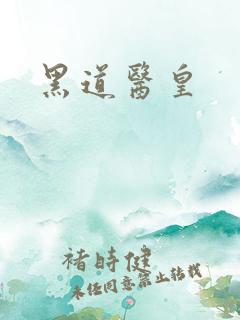 黑道醫皇
褚時健
未任同意禁止轉載